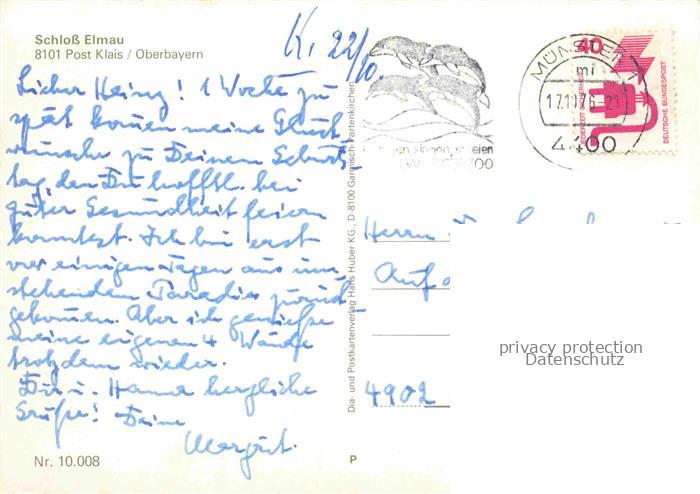 Schloß Elmau
8101 Post Klais / Oberbayern
K. 22/10.
Lieber Heinz! 1 Woche zu
spät kommen meine Glück
wünsche zu Deinem Geburts-
tag, den Du hofftl. bei
guter Gesundheit feiern
konntest. Ich bin erst
vor einigen Tagen aus um-
stehendem Paradies zurück
gekommen. Aber ich genieße
meine eigenen 4 Wände
trotzdem wieder.
Dir u. Hanna herzliche
Grüße! Deine
Margret.
Nr. 10.008
P
Dia- und Postkartenverlag Hans Huber KG., D-8100 Garmisch-Partenkirchen
MÜNSTER
mi
17.10.76-21
4400
40
JEDERZEIT SICHERHEIT
DEUTSCHE BUNDESPOST
Herrn
Auf
4902
privacy protection
Datenschutz